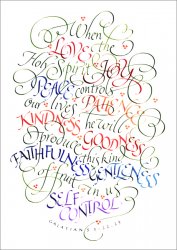 When the
LOVE JOY
Holy Spirit
PEACE controls
our lives PATIENCE
KINDNESS he will
GOODNESS
produce
FAITHFULNESS this kind
GENTLENESS
of fruit in us
SELF
CONTROL
GALATIANS 5:22,23